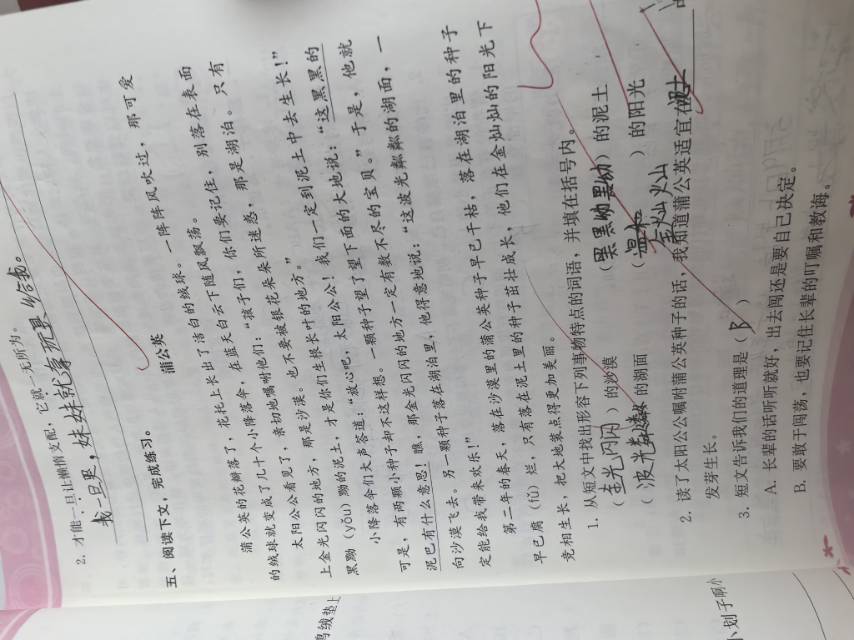 2. 才能一旦让懒惰支配，它就一无所为。
我一旦哭，妹妹就拿玩具哄我。
五、阅读下文，完成练习。
蒲公英
蒲公英的花瓣落了，花托上长出了洁白的绒球。一阵阵风吹过，那可爱
的绒球就变成了几十个小降落伞，在蓝天白云下随风飘荡。
太阳公公看见了，亲切地嘱咐他们：“孩子们，你们要记住，别落在表面
上金光闪闪的地方，那是沙漠。也不要被银花朵朵所迷惑，那是湖泊。只有
黑黝（yǒu）黝的泥土，才是你们生根长叶的地方。”
小降落伞们大声答道：“放心吧，太阳公公！我们一定到泥土中去生长！”
可是，有两颗小种子却不这样想。一颗种子望了望下面的大地说：“这黑黑的
泥巴有什么意思！瞧，那金光闪闪的地方一定有数不尽的宝贝。”于是，他就
向沙漠飞去。另一颗种子落在湖泊里，他得意地说：“这波光粼粼的湖面，一
定能给我带来欢乐！”
第二年的春天，落在沙漠里的蒲公英种子早已干枯，落在湖泊里的种子
早已腐（fǔ）烂，只有落在泥土里的种子茁壮成长，他们在金灿灿的阳光下
竞相生长，把大地装点得更加美丽。
1. 从短文中找出形容下列事物特点的词语，并填在括号内。
（金光闪闪）的沙漠 （黑黝黝）的泥土
（波光粼粼）的湖面 （ 金灿灿 ）的阳光
2. 读了太阳公公嘱咐蒲公英种子的话，我知道蒲公英适宜在泥土
发芽生长。
3. 短文告诉我们的道理是（ B ）
A. 长辈的话听听就好，出去闯还是要自己决定。
B. 要敢于闯荡，也要记住长辈的叮嘱和教诲。